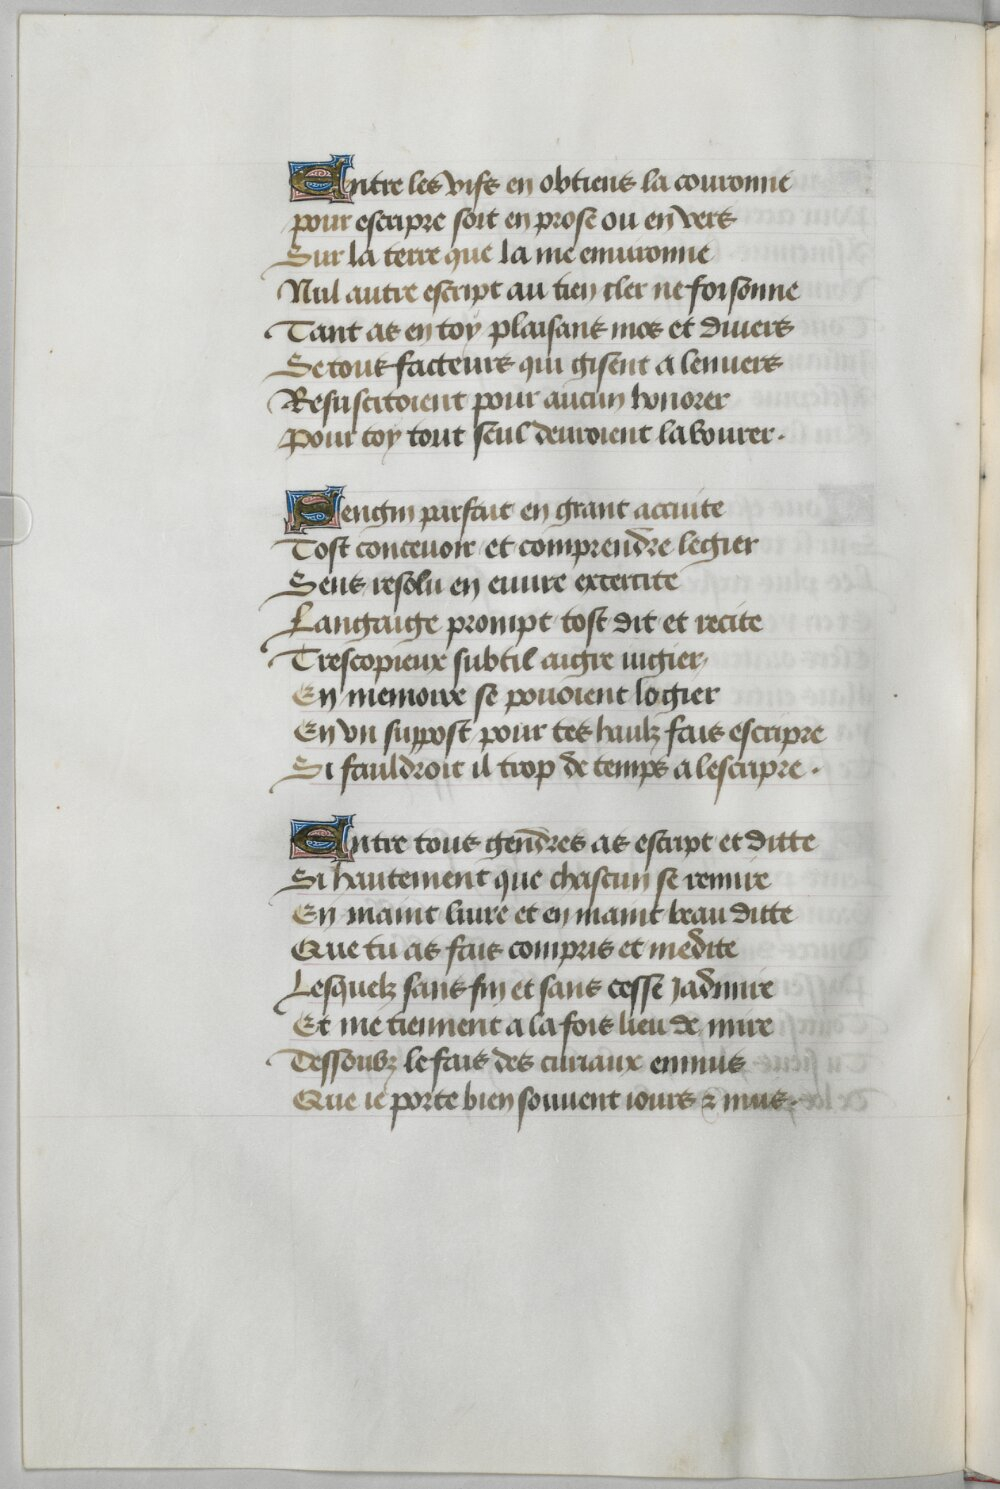 Entre les vifs en obtiens la couronne
pour escripre soit en prose ou en vers
Sur la terre que la me enuironne
Nul autre escript au tien cler ne forsonne
Tant as en toy plaisans mos et diuers
Se tous facteurs qui gisent a lenuers
Resuscitoient pour aucun honorer
Pour toy tout seul deuroient labourer.
Sengin parfait en grant accuite
Tost conceuoir et comprendre legier
Sens resolu en euure excercite
Langaige prompt tost dit et recite
Trescopieux subtil aigre iugier
En memoire se pouoient logier
En vn suppost pour tes haulz fais escripre
Si fauldroit il trop de temps a lescripre.
Entre tous gendres as escript et ditte
Si hautement que chascun se remire
En maint liure et en maint beau ditte
Que tu as fais compris et medite
Lesquelz sans fin et sans cesse jadmire
Et me tiennent a la fois lieu de mire
Dessoubz le fais des curiaux ennuis
Que ie porte bien souuent iours & nuis.